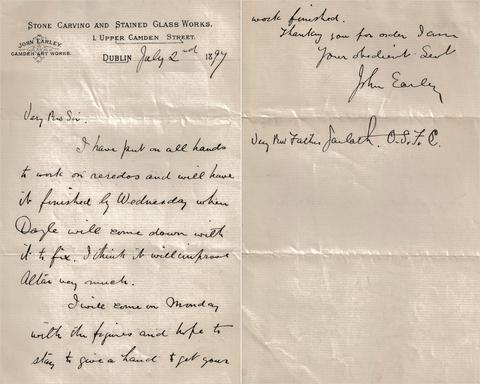 STONE CARVING AND STAINED GLASS WORKS.
1, UPPER CAMDEN STREET.
JOHN EARLEY,
CAMDEN ART WORKS.
DUBLIN July 2nd 1897
Very Rev Sir.
I have put on all hands
to work on reredos and will have
it finished by Wednesday when
Doyle will come down with
it to fix. I think it will improve
Altar very much.
I will come on Monday
with the figures and hope to
stay to give a hand to get your
work finished.
Thanking you for order I am
Your obedient Sevt
John Earley
Very Rev Father Jarlath. O.S.F.C.